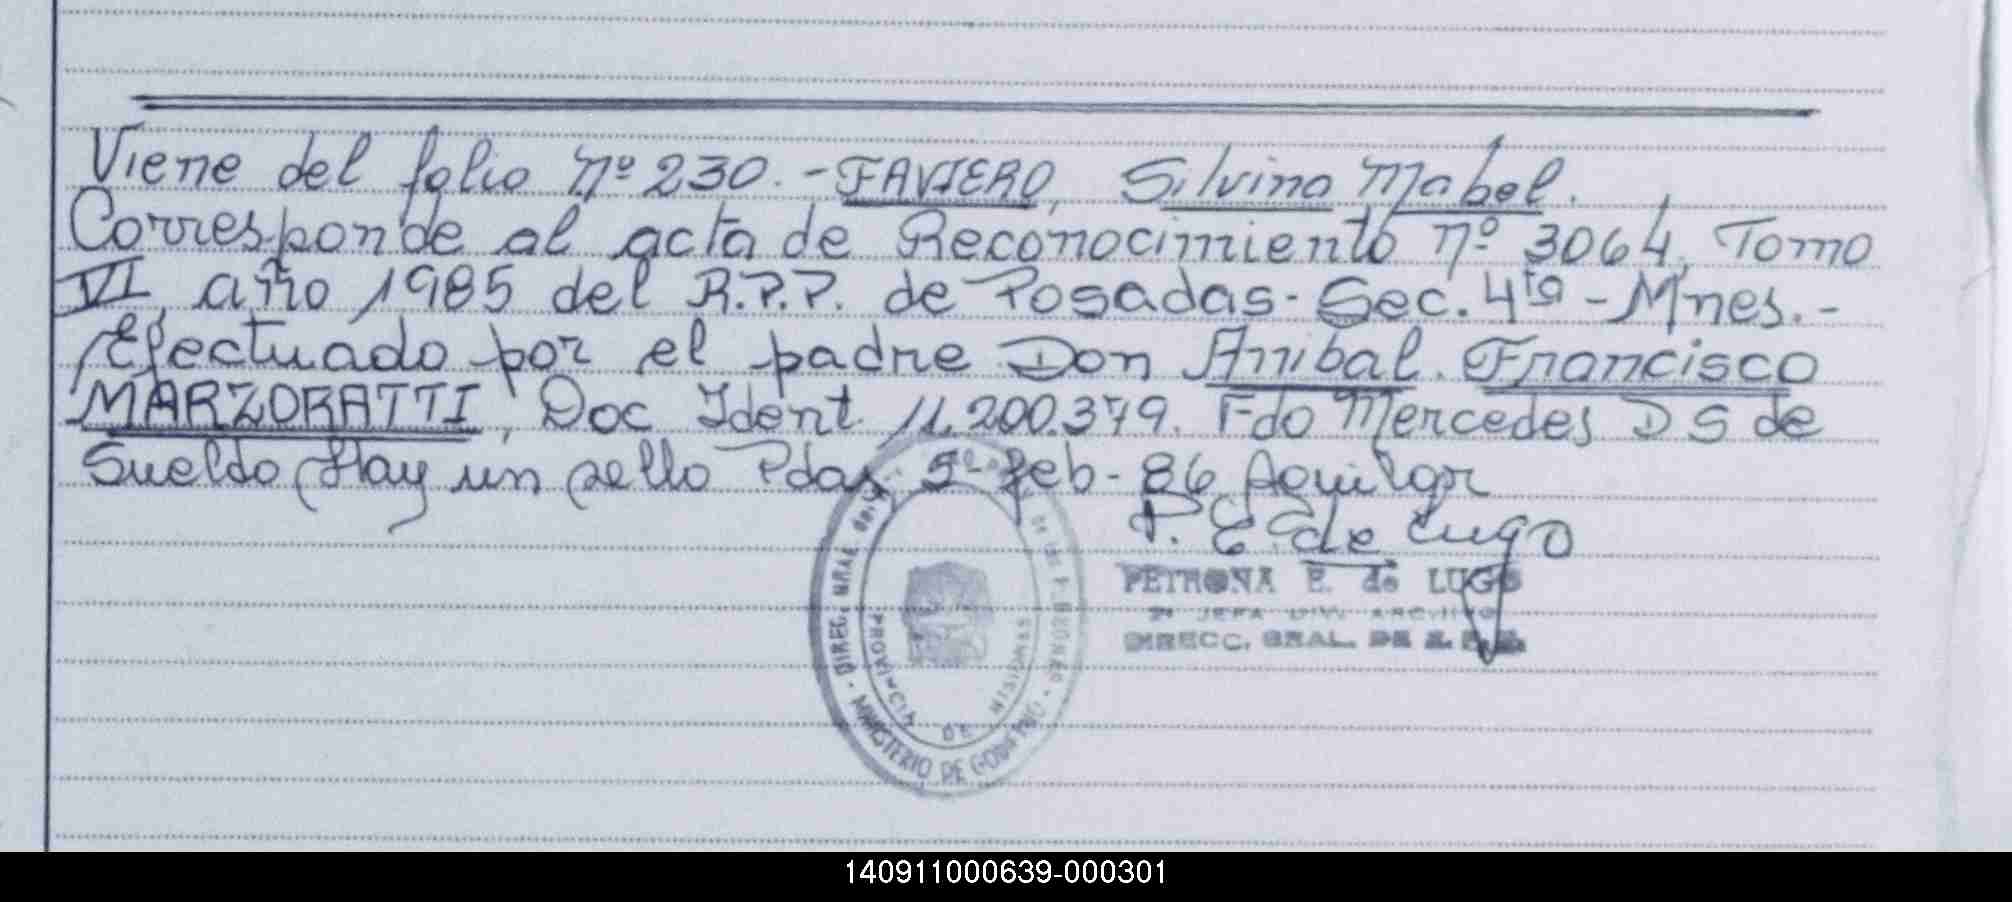 Viene del folio nº 230.-FAVIERO, Silvina Mabel.
Corresponde al acta de Reconocimiento nº 3064, Tomo
VI, año 1985 del R.P.P. de Posadas-Sec. 4ta-Mnes.-
Efectuado por el padre Don Anibal Francisco
MARZORATTI, Doc Ident 11.200.379. Fdo Mercedes D S de
Sueldo Hay un sello Pdas, 5-feb-86 Aguilar
P. E. de Lugo
PETRONA E. de LUGO
JEFA DIV. ARCHIVO
DIRECC. GRAL. DE
DIREC. GRAL. de las Personas
MINISTERIO DE GOBIERNO
PROVINCIA DE MISIONES
140911000639-000301